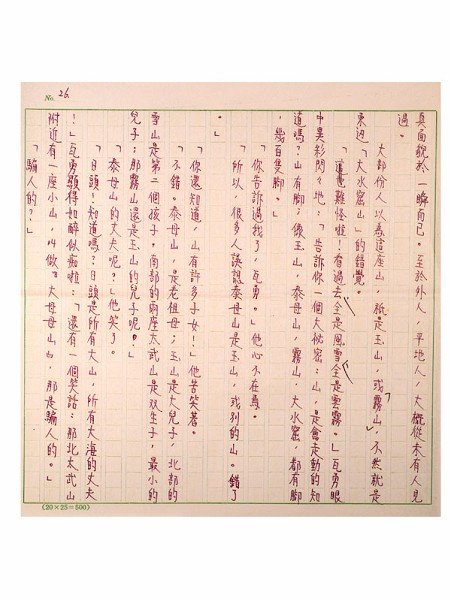 No. 26
真面貌於一瞬而已。至於外人,平地人,大概從未有人見
過。
大部份人以為這座山,祇是玉山,或「霧山」,不然就是
東边「大水窟山」的錯覺。
「這還難怪啦!看過去全是風雪全是雲霧。」瓦勇眼
中異彩閃々地:「告訴你一個大秘密:山,是會走動的知
道嗎?山有脚;像玉山,泰母山,霧山,大水窟,都有脚
,幾百隻脚。」
「你告訴過我了,瓦勇。」他心不在焉。
「所以,很多人誤認泰母山是玉山,或別的山。錯了
。」
「你還知道,山有許多子女!」他苦笑著。
「不錯。泰母山,是老祖母;玉山是大兒子,北部的
雪山是第二個孩子,南部的兩座太武山是双生子,最小的
兒子;那霧山還是玉山的兒子呢。」
「泰母山的丈夫呢?」他笑了。
「日頭!知道嗎?日頭是所有大山,所有大海的丈夫
!」瓦勇顯得如醉似癡啦:「還有一個笑話:那北太武山
附近有一座小山,叫做『大母母山』,那是騙人的。」
「騙人的?」
(20×25=500)